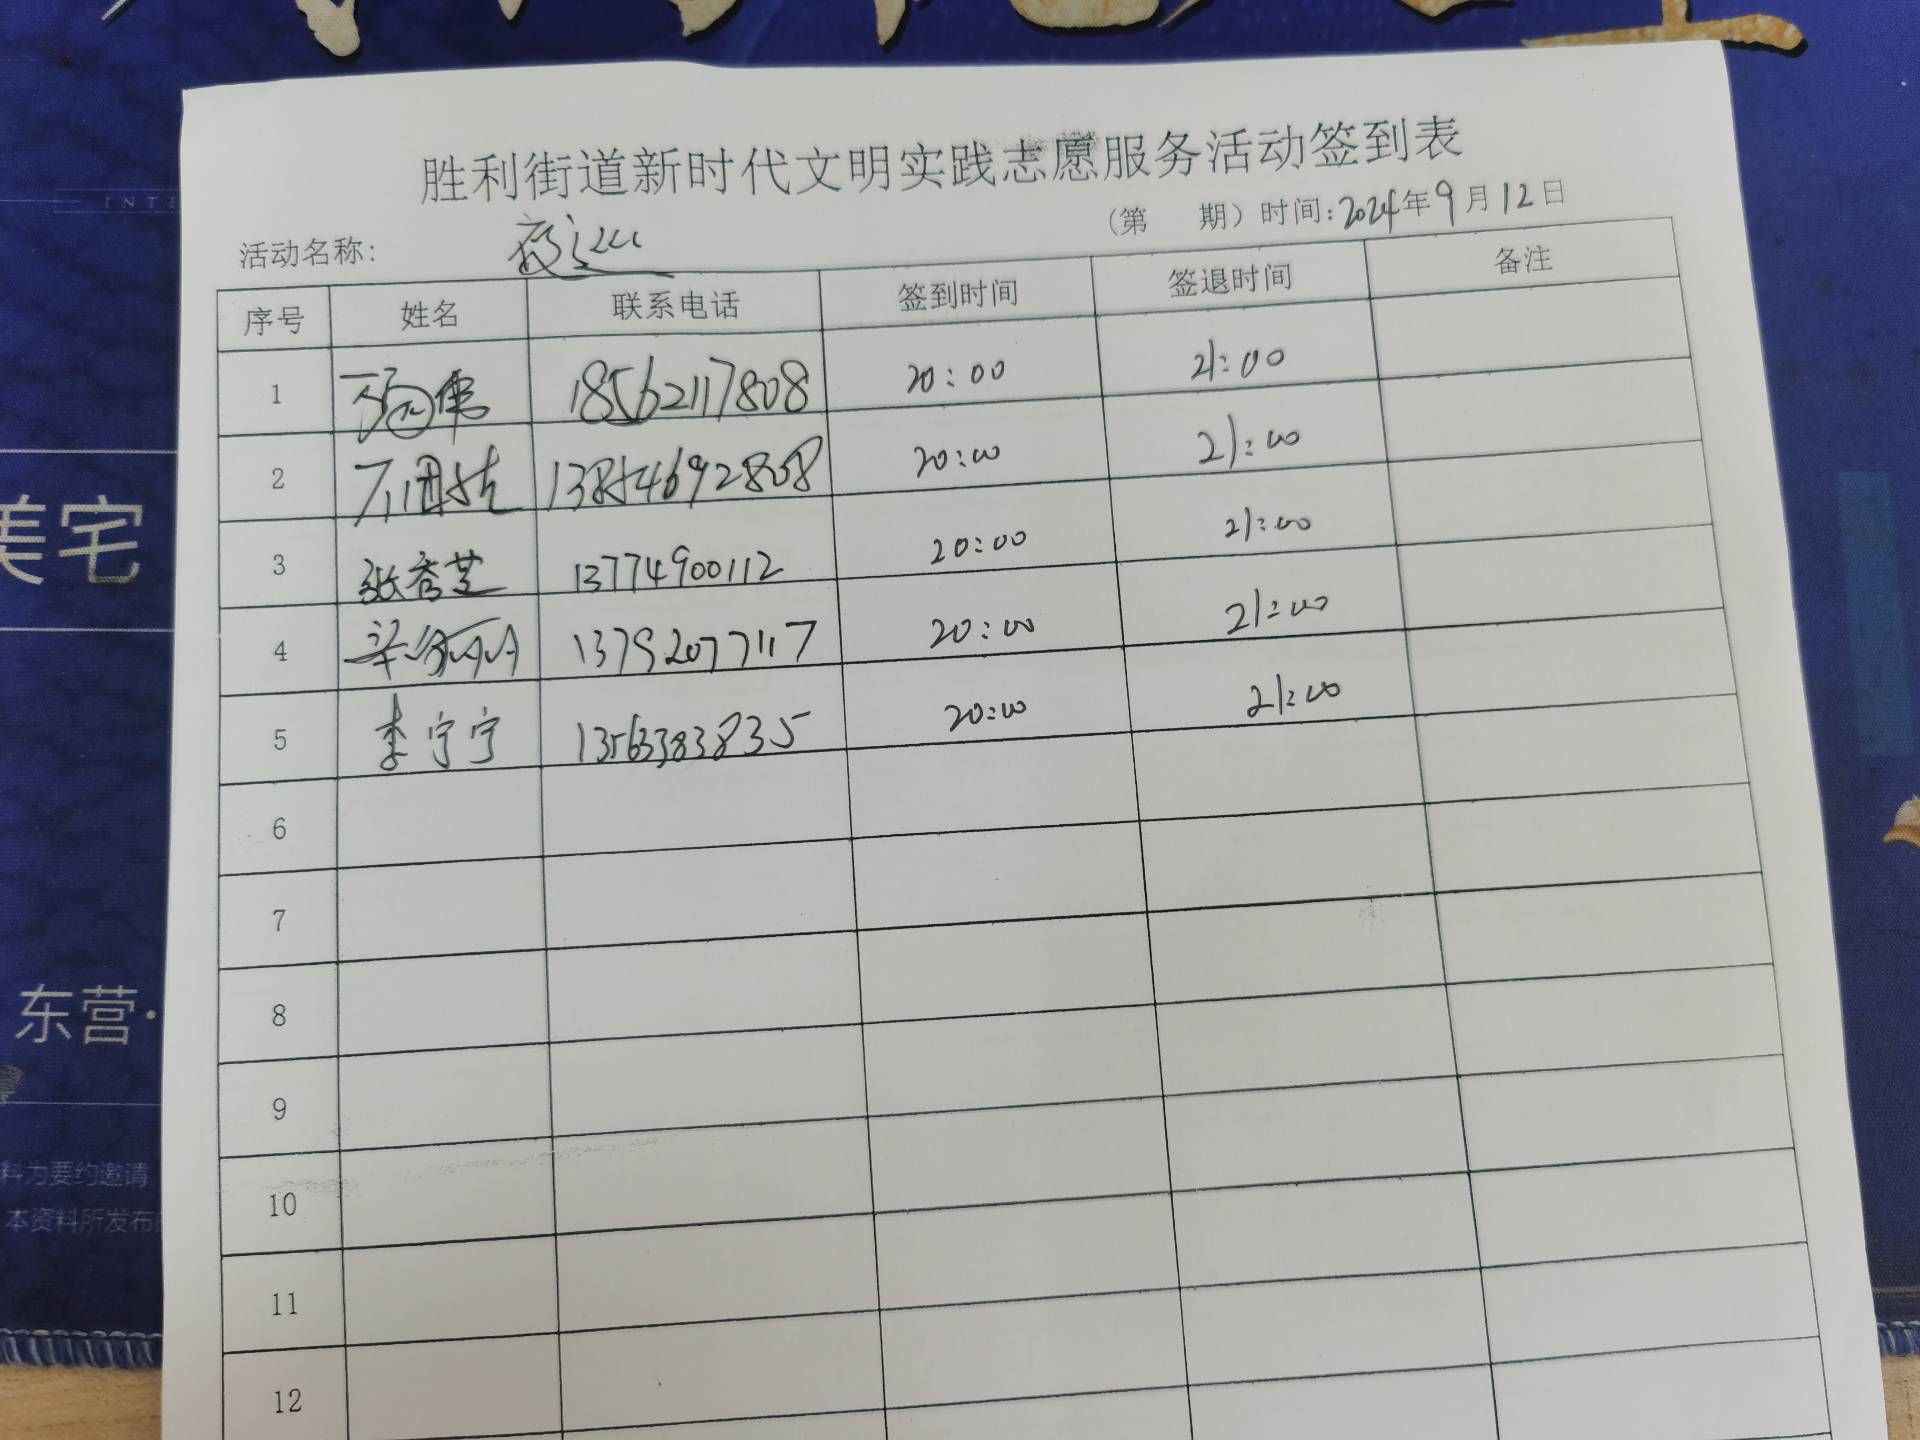 胜利街道新时代文明实践志愿服务活动签到表
(第 期）时间:2024年9月12日
活动名称: 夜巡
序号 姓名 联系电话 签到时间 签退时间 备注
1 18562117808 20:00 21:00
2 13854692808 20:00 21:00
3 张秀芝 13774900112 20:00 21:00
4 13792077117 20:00 21:00
5 李宁宁 13563383835 20:00 21:00
6
7
8
9
10
11
12
INTE
美宅
东营·
料为要约邀请
本资料所发布